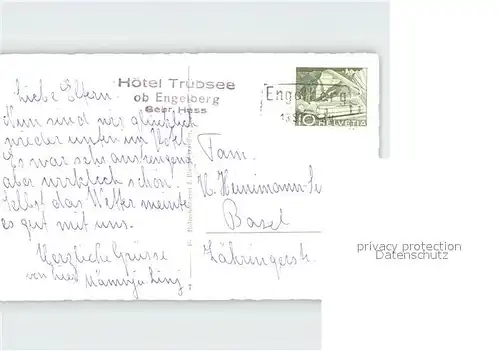 Hotel Trübsee
ob Engelberg
Gebr. Hess
Liebe Eltern.
Nun sind wir glücklich
wieder unten im Hotel
Es war sehr anstrengend
aber wirklich schön.
Selbst das Wetter meinte
es gut mit uns.
Herzliche Grüsse
von hier
Engelberg
10 HELVETIA
Fam.
Basel
Zähringerstr.
privacy protection
Datenschutz